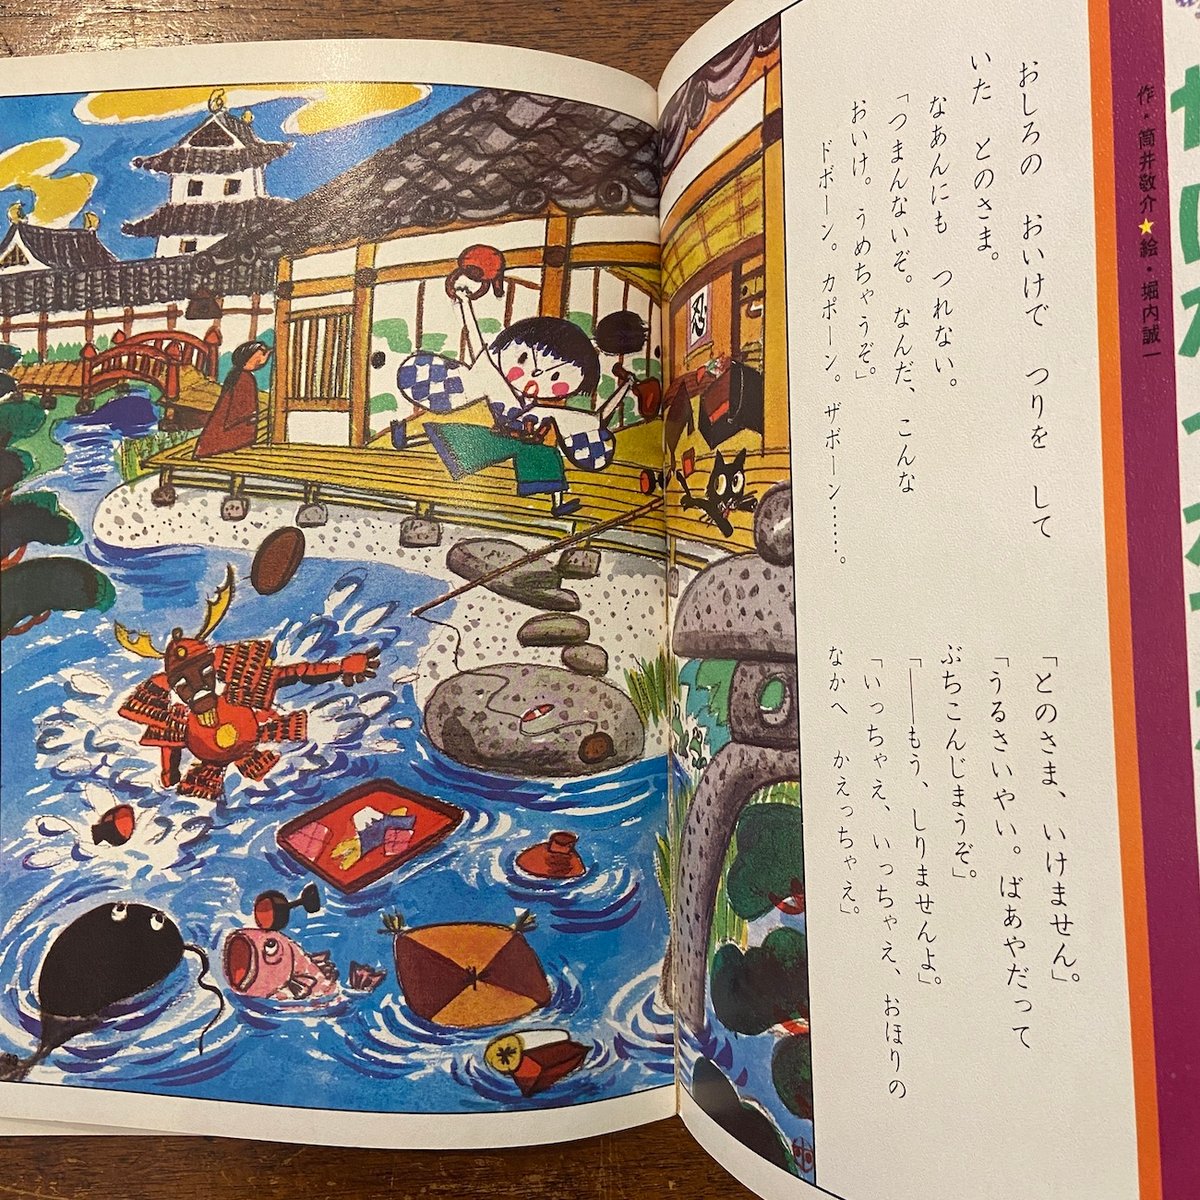 作・筒井敬介★絵・堀内誠一
おしろの おいけで つりを して
いた とのさま。
なあんにも つれない。
「つまんないぞ。なんだ、こんな
おいけ。うめちゃうぞ」
ドボーン。カポーン。ザボーン……。
「とのさま、いけません」。
「うるさいやい。ばあやだって
ぶちこんじまうぞ」。
「――もう、しりませんよ」。
「いっちゃえ、いっちゃえ、おほりの
なかへ かえっちゃえ」。
忍